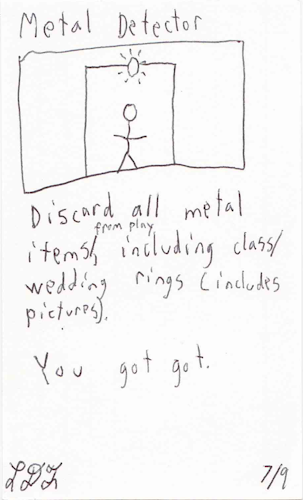 Metal Detector
Discard all metal
from play
items, including class/
wedding rings (includes
pictures).
You got got.
LDZ 7/9